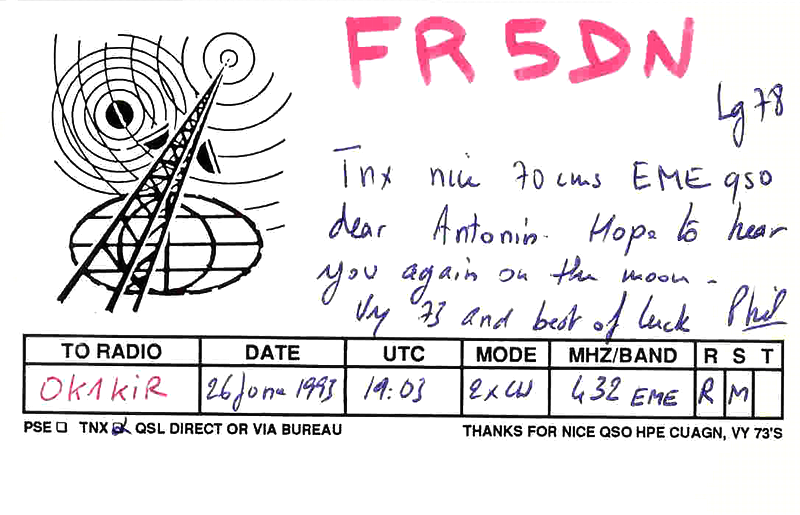 FR5DN
Lg 78
Tnx nice 70 cms EME qso
dear Antonin. Hope to hear
you again on the moon.
Vy 73 and best of luck Phil
TO RADIO DATE UTC MODE MHZ/BAND R S T
OK1KIR 26 June 1993 19:03 2xCW 432 EME R M
PSE TNX QSL DIRECT OR VIA BUREAU THANKS FOR NICE QSO HPE CUAGN, VY 73'S